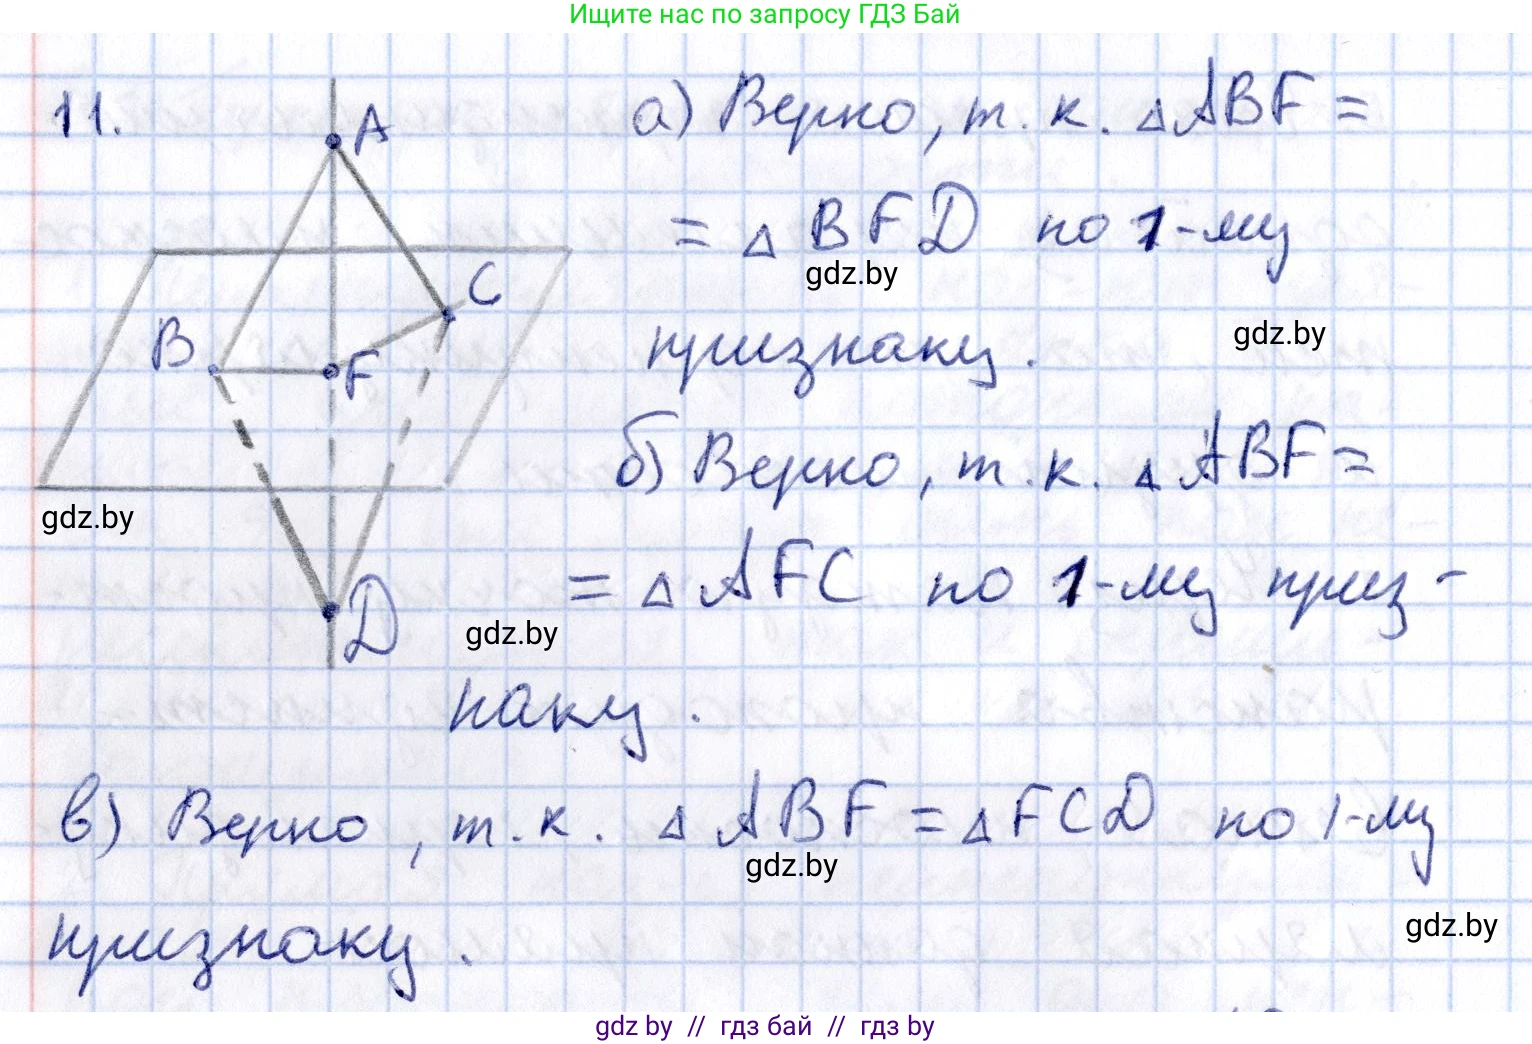 Ищите нас по запросу ГДЗ Бай
11.
A
B
C
F
D
а) Верно, т. к. △ABF =
= △ BFD по 1-му
gdz.by
gdz.by
признаку.
б) Верно, т. к. △ ABF =
gdz.by
= △ AFC по 1-му приз-
gdz.by
наку.
в) Верно, т. к. △ ABF = △ FCD по 1-му
gdz.by
gdz.by
признаку.
gdz by // гдз бай // гдз by